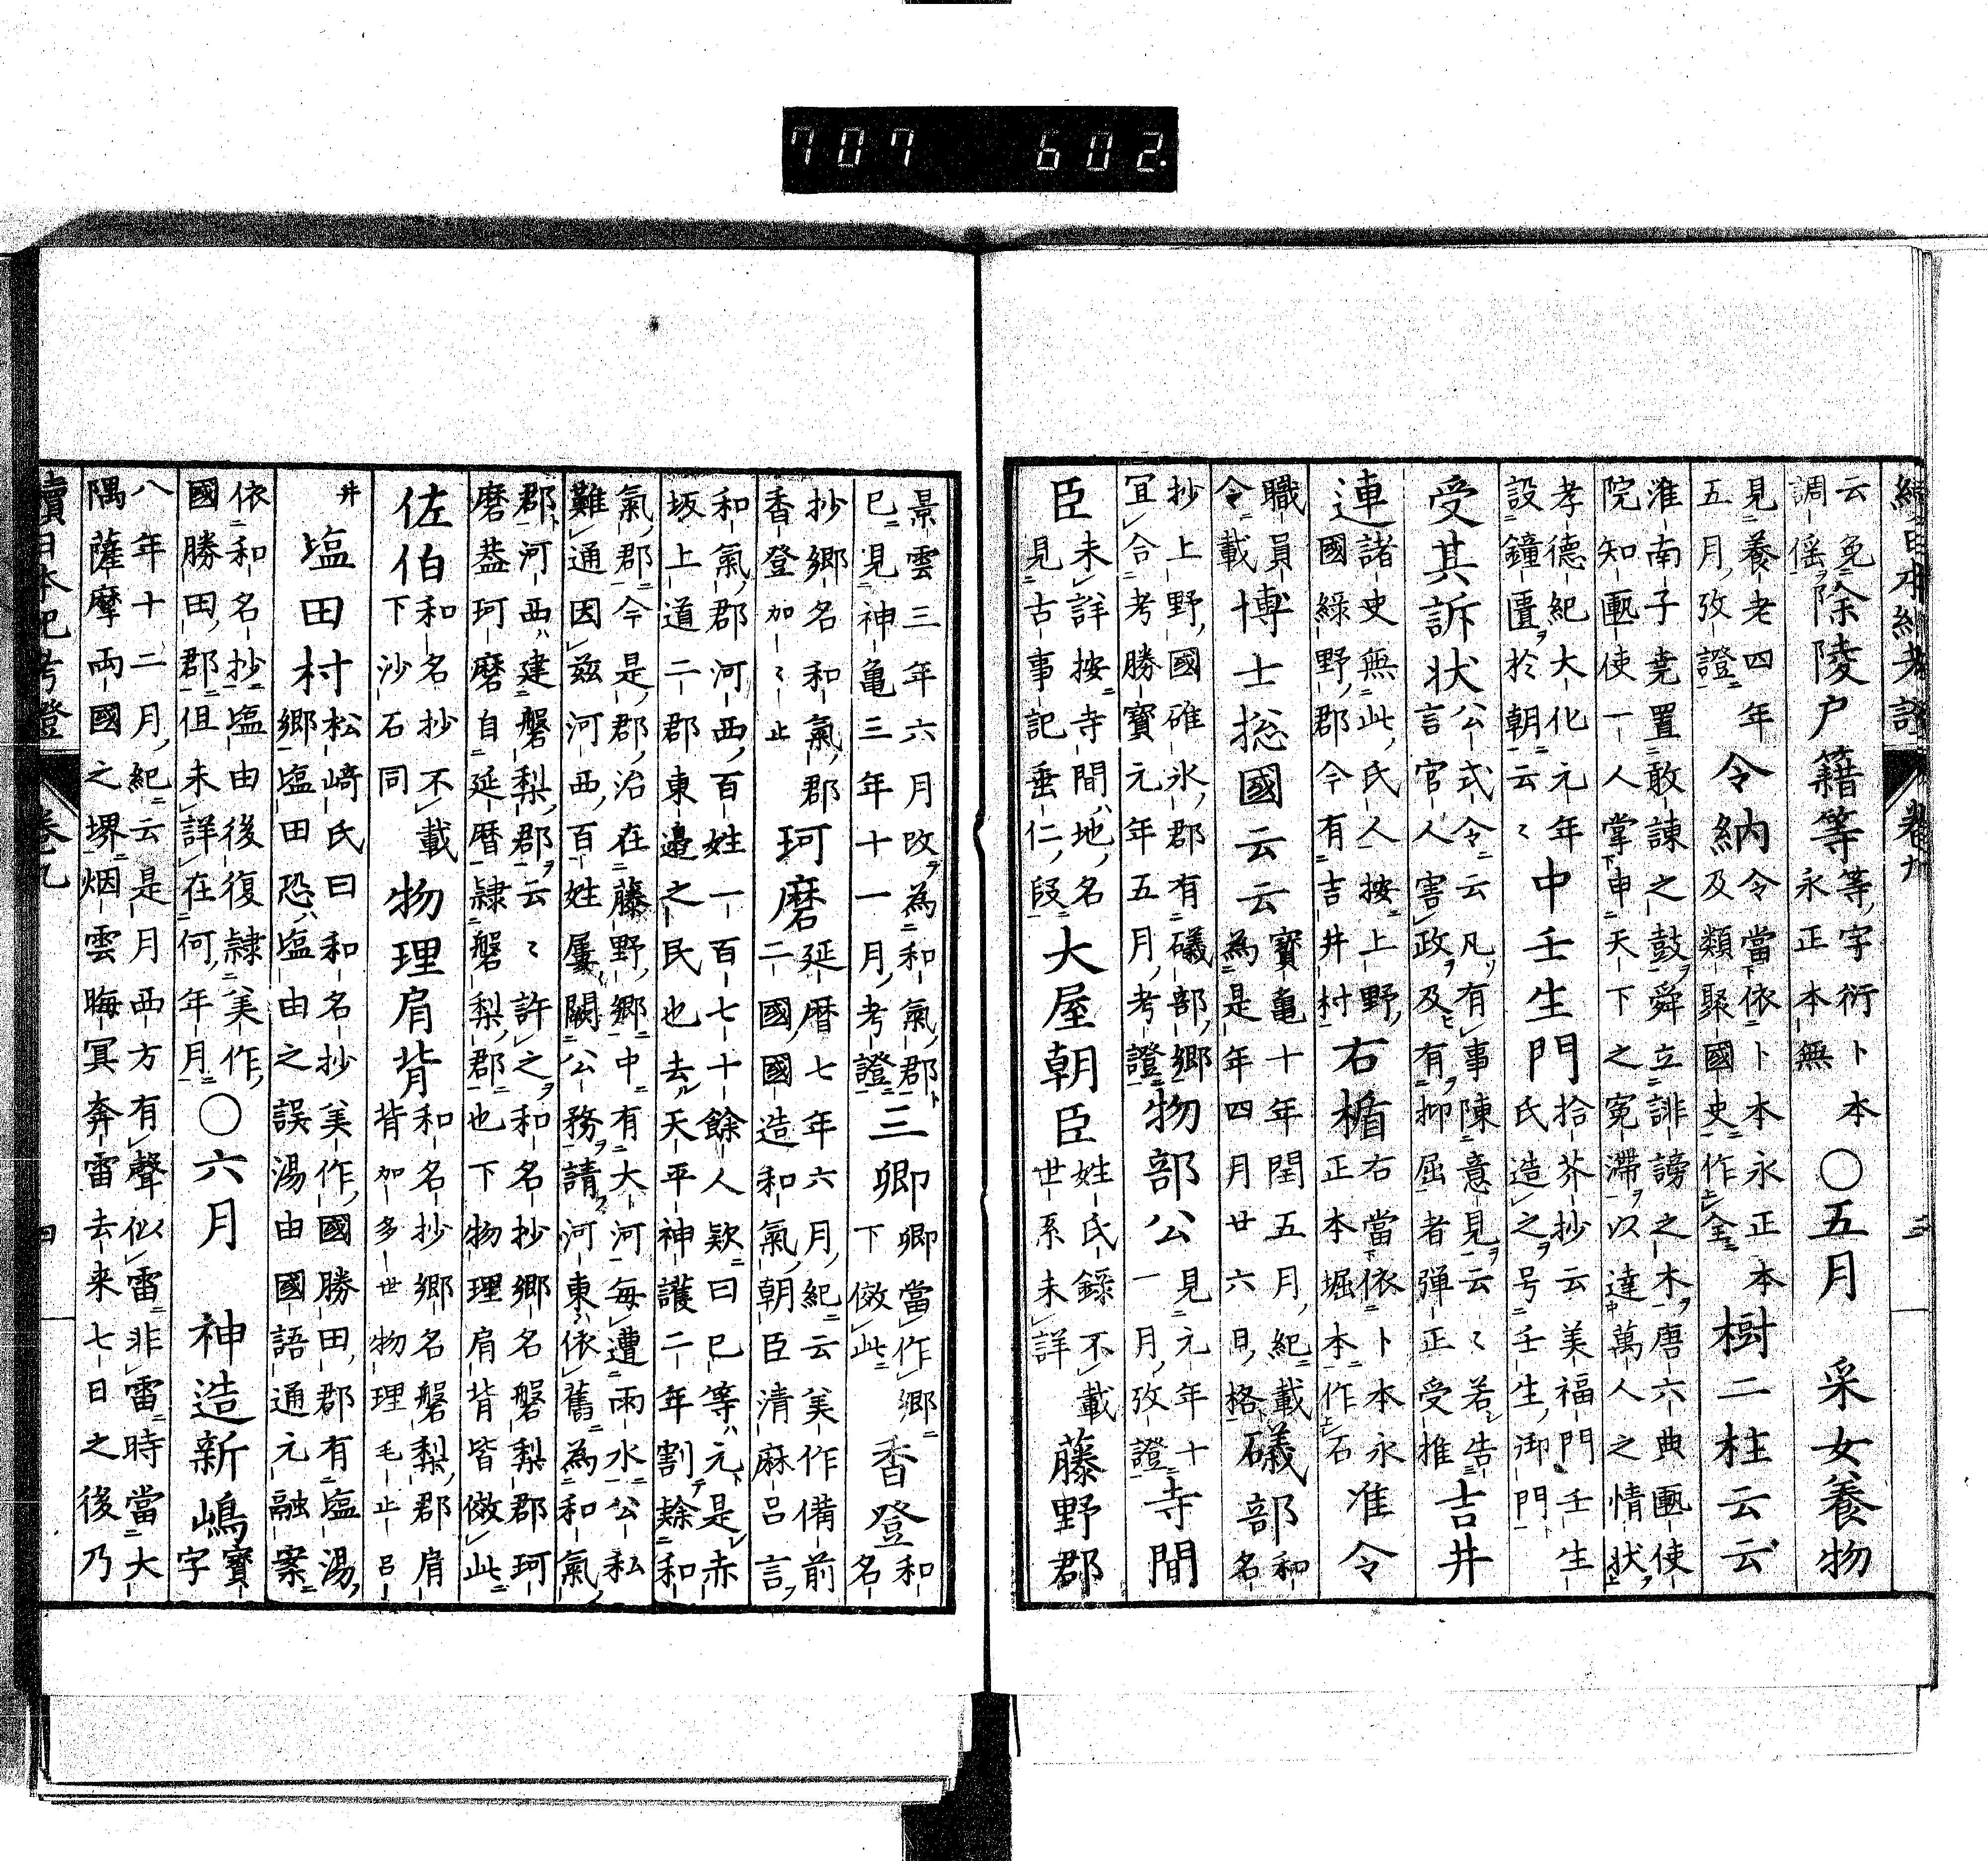 707 602
續日本紀考證 卷九 三
云免調傜除陵戸籍等等字衍卜本永正本無〇五月 采女養物
見養老四年五月攷證令納令當依卜本永正本及類聚國史作全樹二柱云云
淮南子堯置敢諫之鼓舜立誹謗之木唐六典匭使院知匭使一人掌申天下之冤滯以達萬人之情状
孝德紀大化元年設鐘匱於朝云〻中壬生門拾芥抄云美福門壬生氏造之号壬生御門
受其訴状公式令云凡有事陳意見云〻若告言官人害政及有抑屈者彈正受推吉井
連諸史無此氏人按上野國緑野郡今有吉井村右楯右當依卜本永正本堀本作石准令
職員令載博士総國云云寶亀十年閏五月紀載為是年四月廿六日格礒部和名
抄上野國碓氷郡有礒部郷宜合考勝寶元年五月考證物部公見元年十一月攷證寺間
臣未詳按寺間地名見古事記垂仁段大屋朝臣姓氏録不載世系未詳藤野郡
景雲三年六月改為和氣郡已見神亀三年十一月考證三卿卿當作郷下倣此香登和名
抄郷名和氣郡香登加〻止珂磨延暦七年六月紀云美作備前二國國造和氣朝臣清麻呂言
和氣郡河西百姓一百七十餘人欵曰已等元是赤坂上道二郡東邉之民也去天平神護二年割隷和
氣郡今是郡治在藤野郷中有大河毎遭雨水公私難通因茲河西百姓屢闕公務請河東依舊為和氣
郡河西建磐梨郡云〻許之和名抄郷名磐梨郡珂磨葢珂磨自延暦隷磐梨郡也下物理肩背皆倣此
佐伯和名抄不載下沙石同物理肩背和名抄郷名磐梨郡肩背加多世物理毛止呂
井塩田村松﨑氏曰和名抄美作國勝田郡有塩湯郷塩田恐塩由之誤湯由國語通元融案
依和名抄塩由後復隷美作國勝田郡但未詳在何年月〇六月 神造新嶋寶字
八年十二月紀云是月西方有聲似雷非雷時當大隅薩摩兩國之堺烟雲晦冥奔雷去来七日之後乃
續日本紀考證 卷九 四